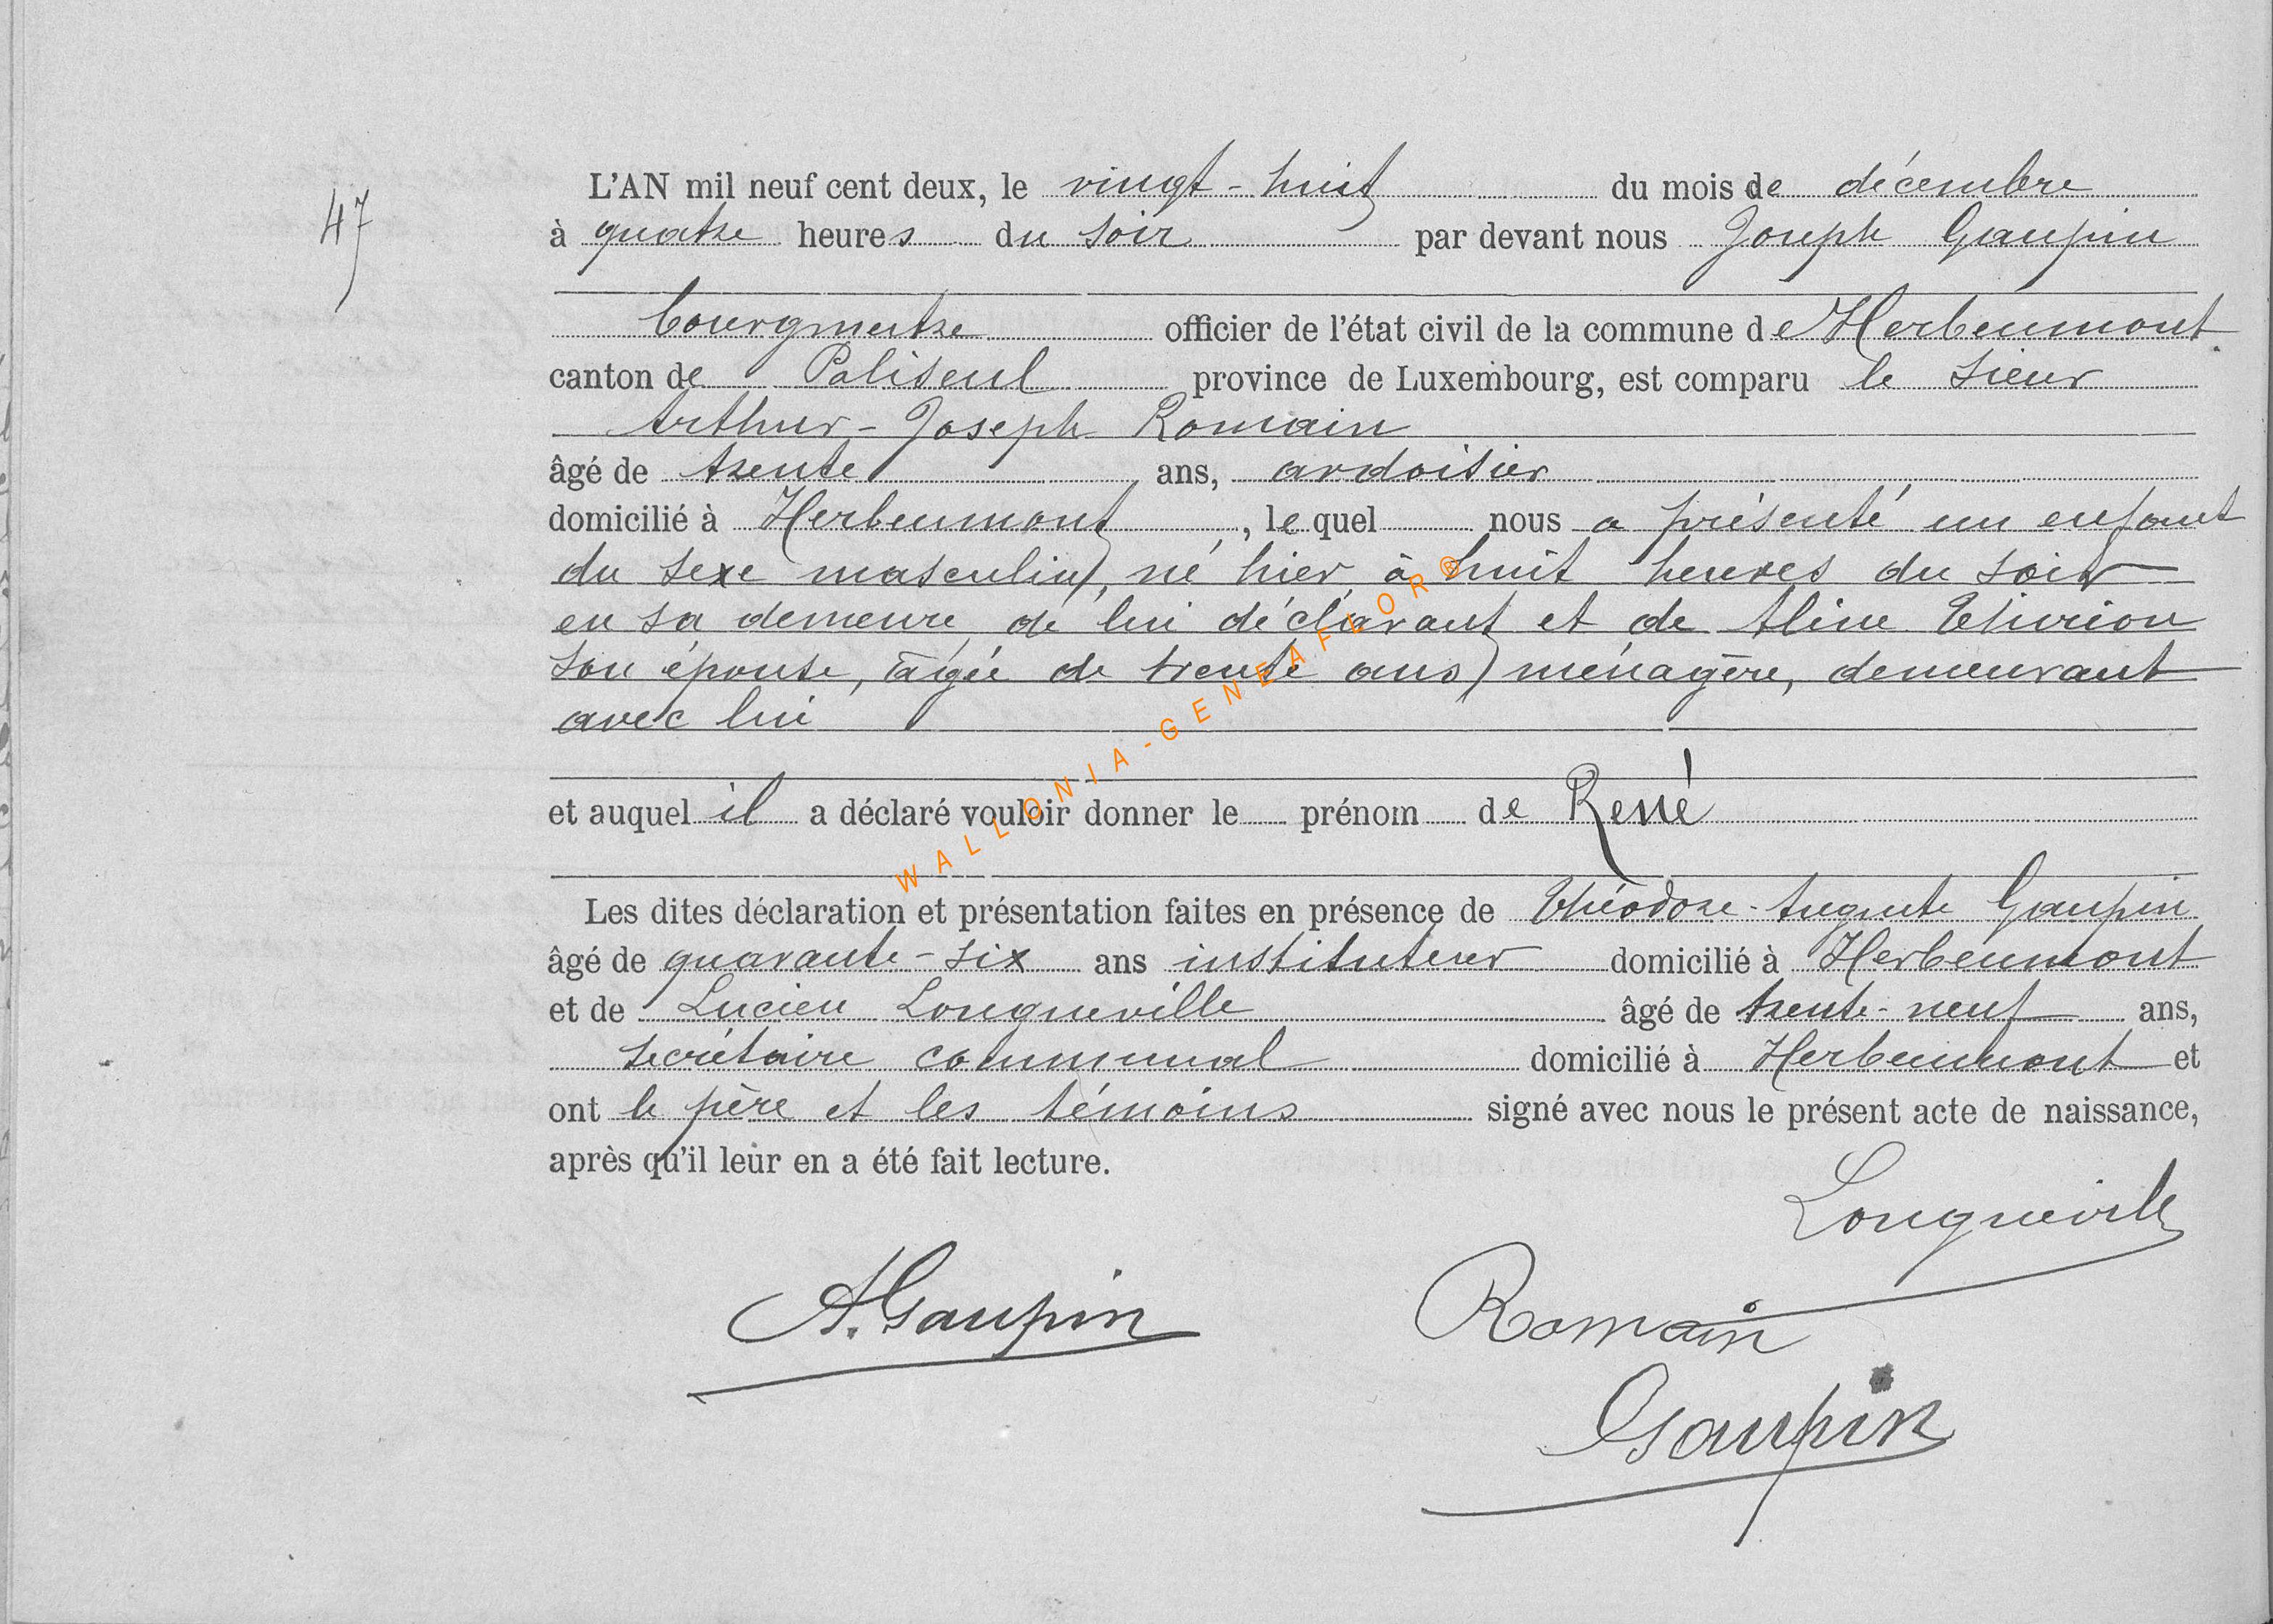 47
L'AN mil neuf cent deux, le vingt-huit du mois de décembre
à quatre heures du soir par devant nous Joseph Gaupin
bourgmestre officier de l'état civil de la commune de Herbeumont
canton de Paliseul province de Luxembourg, est comparu le sieur
Arthur-Joseph Romain
âgé de trente ans, ardoisier
domicilié à Herbeumont, lequel nous a présenté un enfant
du sexe masculin, né hier à huit heures du soir
en sa demeure, de lui déclarant et de Aline Thirion
son épouse, âgée de trente ans, ménagère, demeurant
avec lui
et auquel il a déclaré vouloir donner le prénom de René
Les dites déclaration et présentation faites en présence de Théodore-Auguste Gaupin
âgé de quarante-six ans instituteur domicilié à Herbeumont
et de Lucien Longueville âgé de trente-neuf ans,
secrétaire communal domicilié à Herbeumont et
ont le père et les témoins signé avec nous le présent acte de naissance,
après qu'il leur en a été fait lecture.
Longueville
A. Gaupin
Romain
Gaupin
WALLONIA-GENEAFLOR®